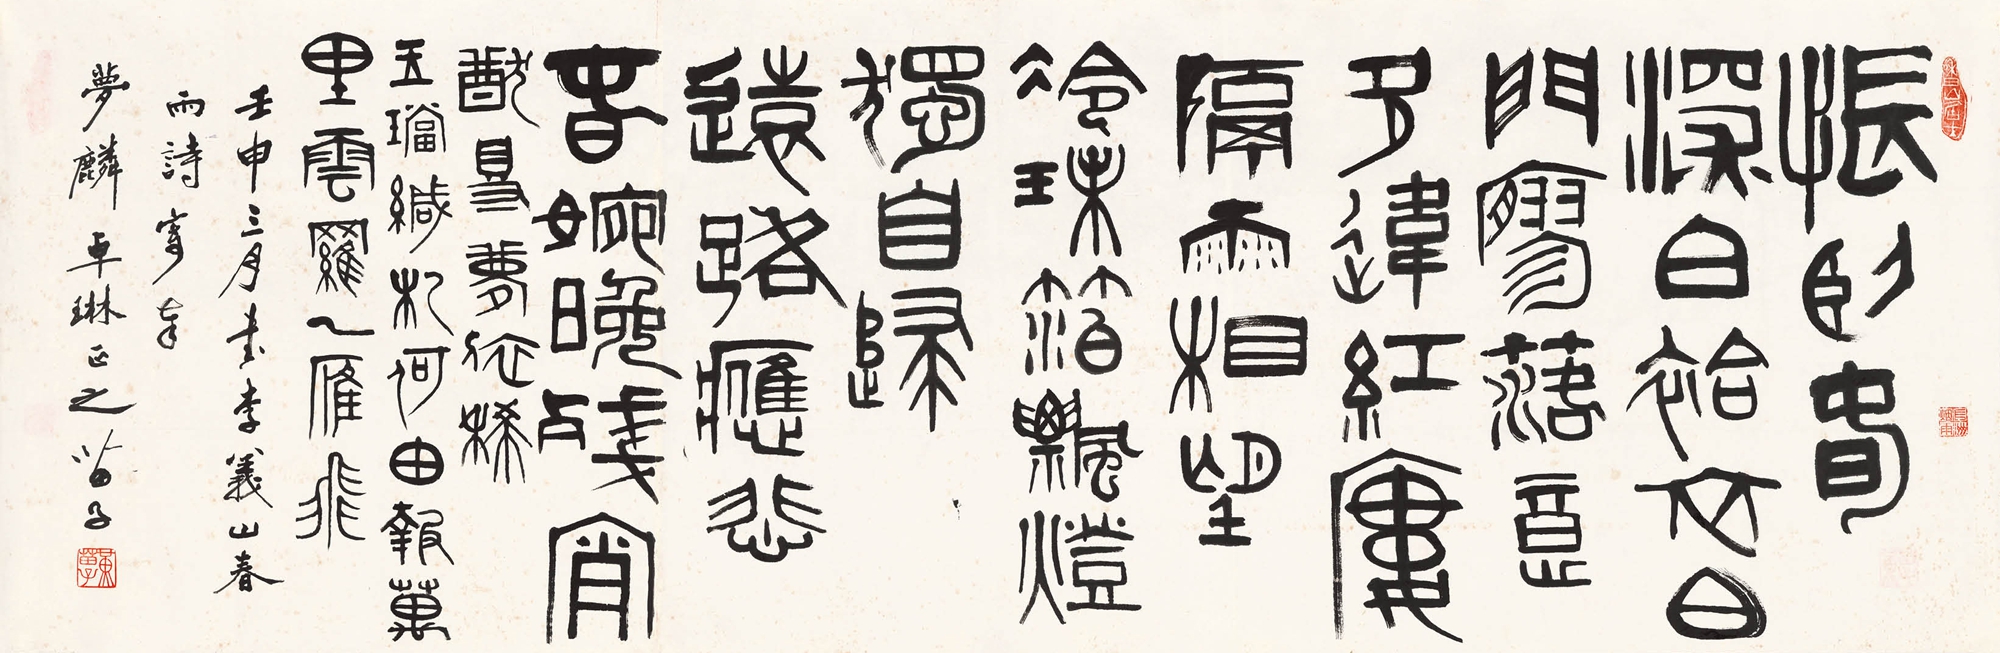 悵卧春
深白袷衣白
門寥落意
多違紅樓
隔雨相望
冷珠箔飄燈
獨自歸
遠路應悲
春婉晚殘宵
猷得夢依稀
玉璫緘札何由報萬
里雲羅一雁飛
壬申三月書李義山春
雨詩寄奉
夢麟卓琳正之 苗子